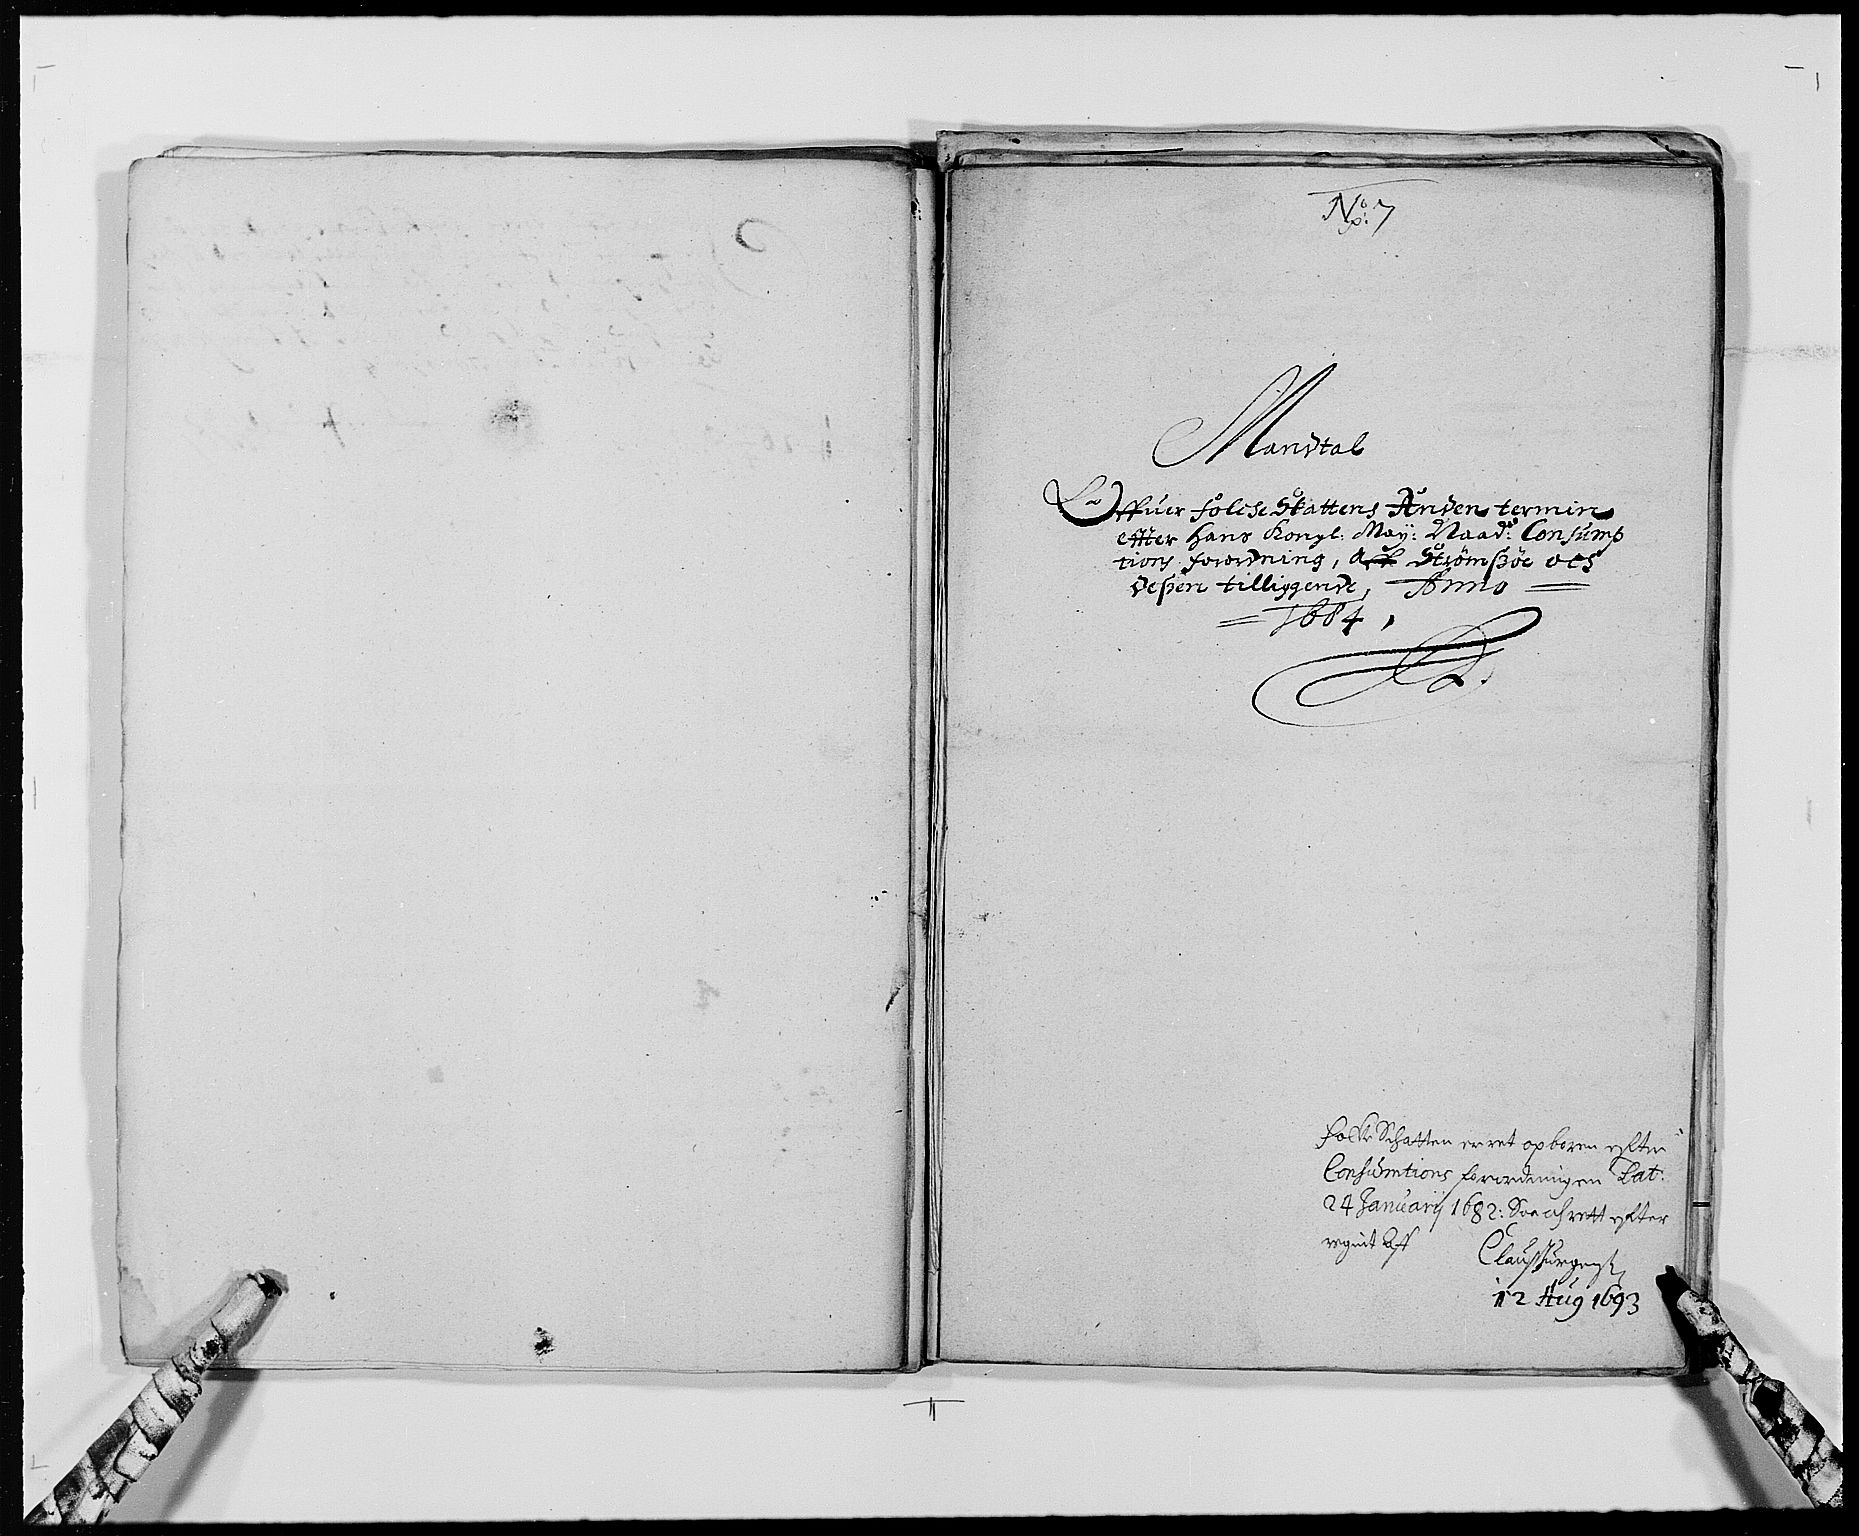 No: 7
Mandtal
Offuer folche Skattens Anden termin
effter Hans Kongl: May: Naad: Consump
tions forordning, aff Strømsøe och
deßen tilliggende, Anno
1684,
Folke Schatten er ret opboren efter
Consumtions forordningen Dat:
24 Januarij 1682: efter
Aff
Clauß Jürgens
12 Aug 1693